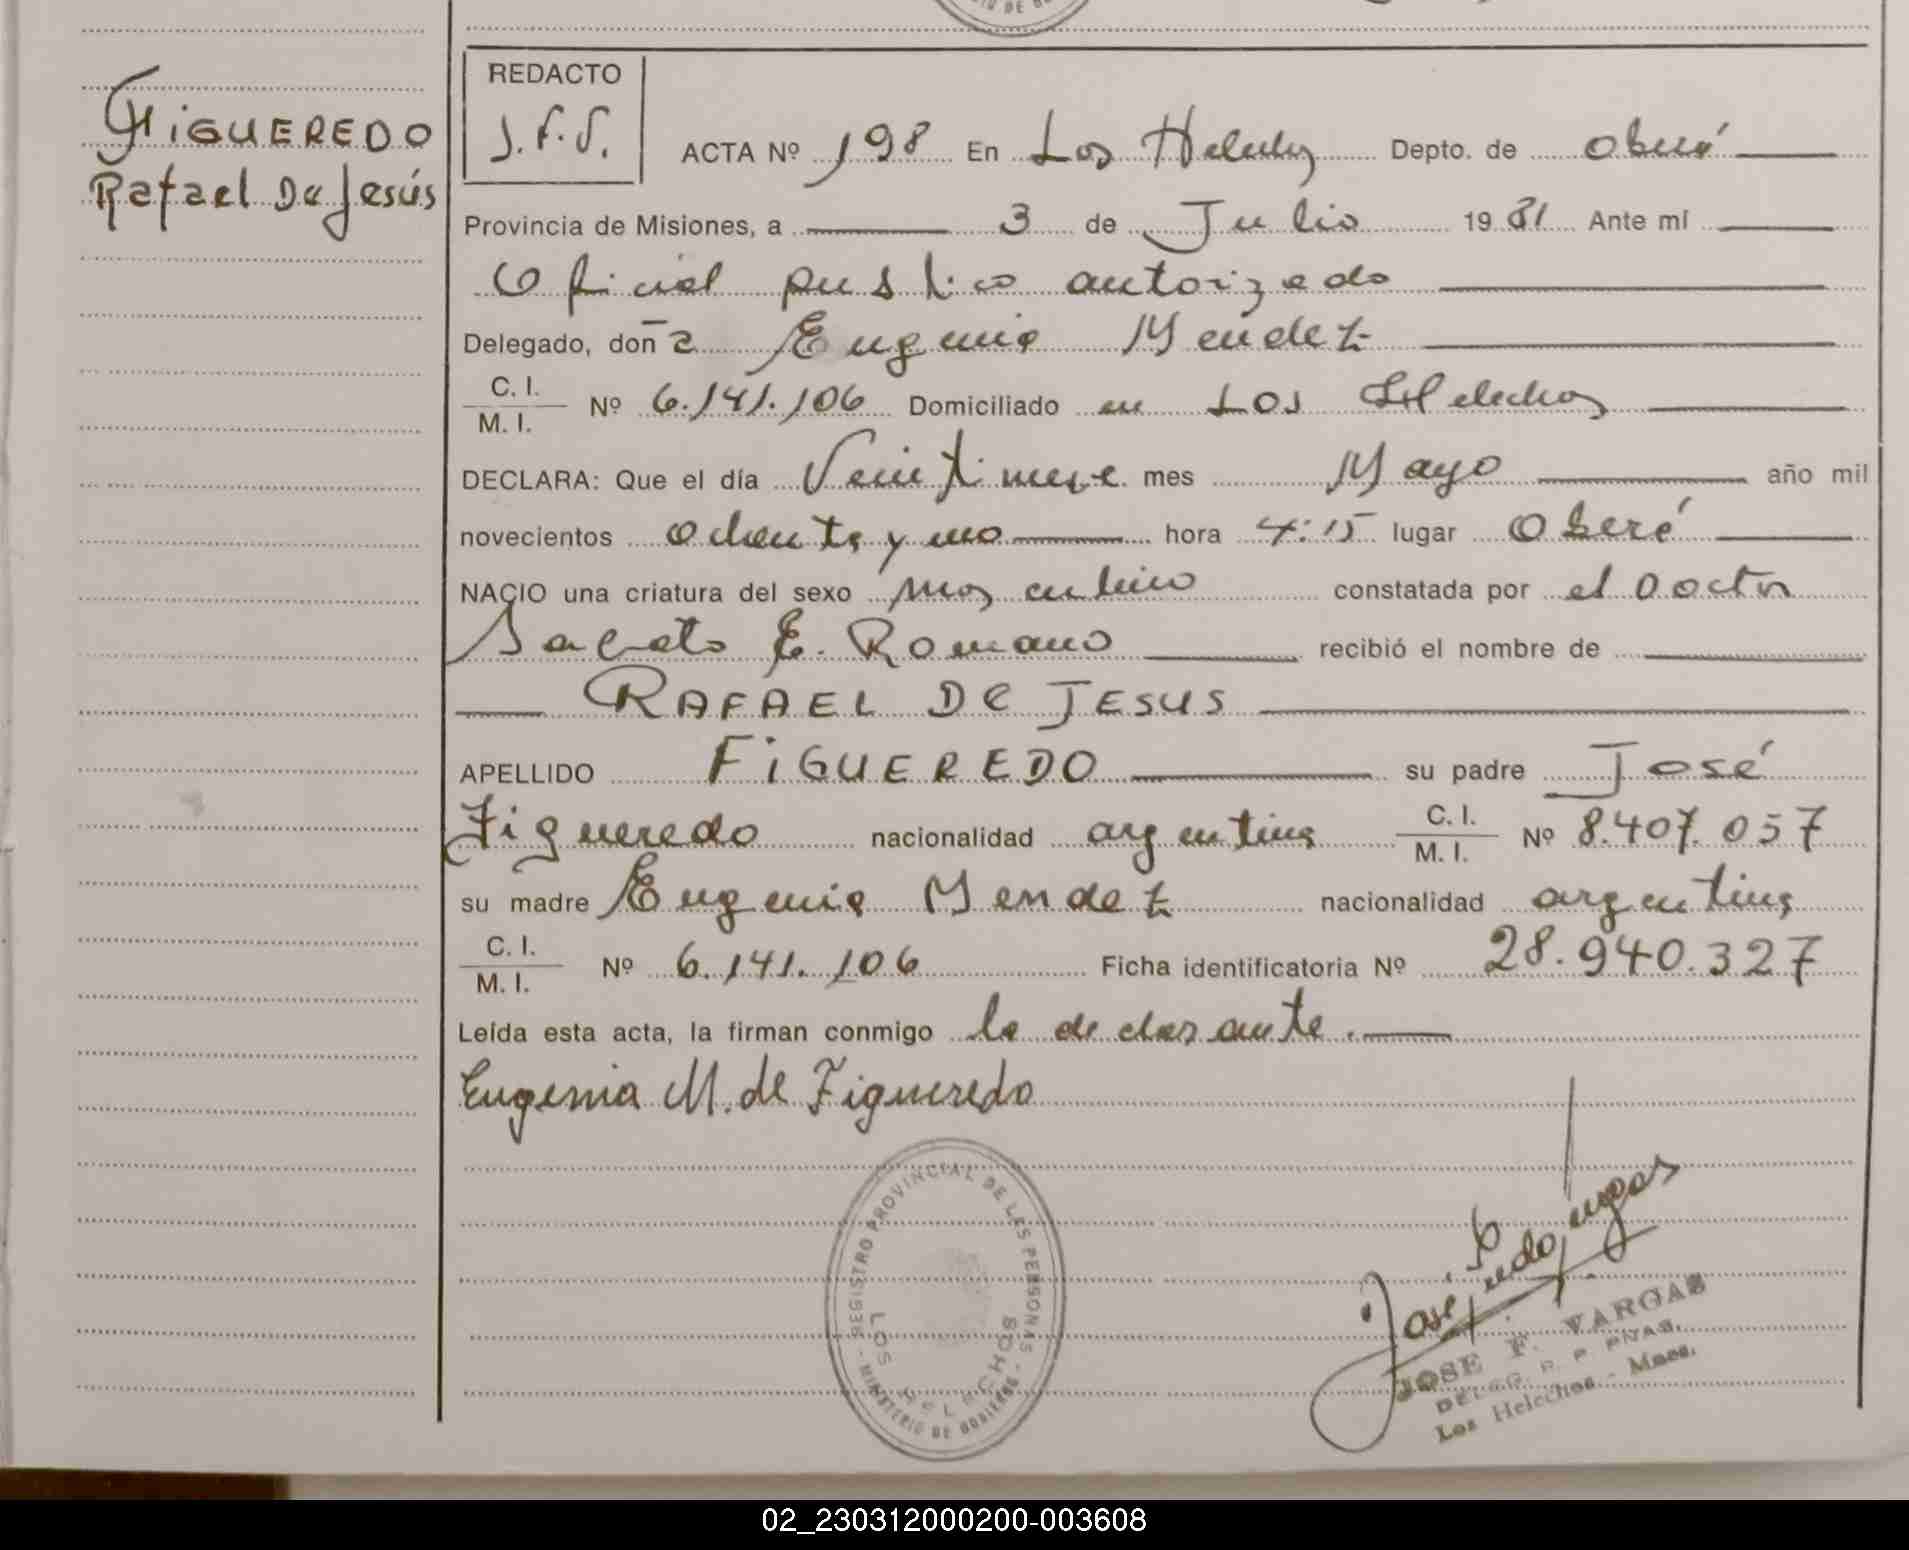 FIGUEREDO
Rafael De Jesús
REDACTO
J.F.V.
ACTA Nº 198 En Los Helechos Depto. de Oberá
Provincia de Misiones, a 3 de Julio 1981 Ante mí
Oficial publico autorizado
Delegado, don a Eugenia Mendez
C. I. / M. I. Nº 6.141.106 Domiciliado en Los Helechos
DECLARA: Que el día Veintinueve mes Mayo año mil
novecientos ochenta y uno hora 4:15 lugar Oberá
NACIO una criatura del sexo masculino constatada por el Doctor
E. Romano recibió el nombre de
RAFAEL De JESUS
APELLIDO FiGUEREDO su padre José
Figueredo nacionalidad argentina C. I. / M. I. Nº 8.407.057
su madre Eugenia Mendez nacionalidad argentina
C. I. / M. I. Nº 6.141.106 Ficha identificatoria Nº 28.940.327
Leída esta acta, la firman conmigo la declarante.
Eugenia M. de Figueredo
REGISTRO PROVINCIAL DE LAS PERSONAS - MINISTERIO DE GOBIERNO -
LOS HELECHOS
José Vargas
JOSE F. VARGAS
DELEG. R. P. PNAS.
Los Helechos - Mnes.
02_230312000200-003608